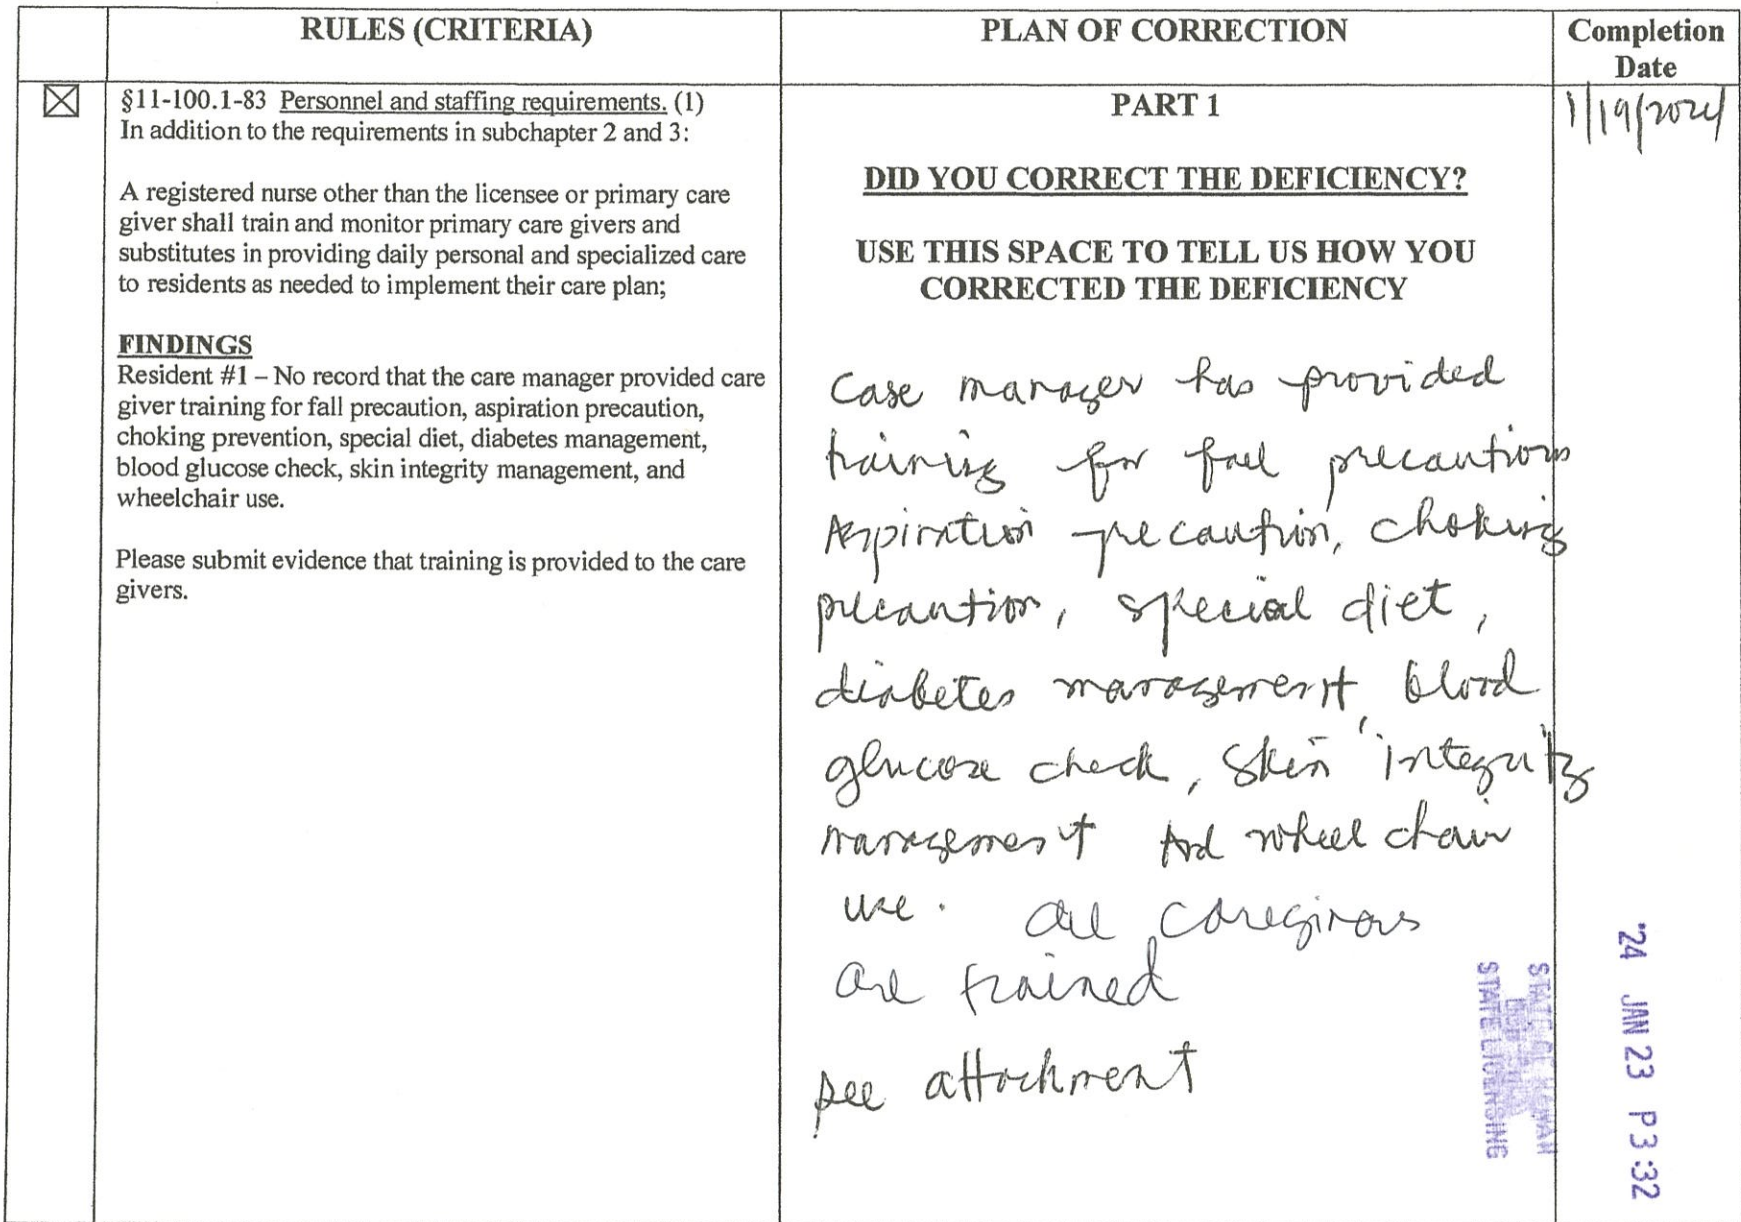 RULES (CRITERIA)
PLAN OF CORRECTION
Completion
Date
§11-100.1-83 Personnel and staffing requirements. (1)
In addition to the requirements in subchapter 2 and 3:
A registered nurse other than the licensee or primary care
giver shall train and monitor primary care givers and
substitutes in providing daily personal and specialized care
to residents as needed to implement their care plan;
FINDINGS
Resident #1 – No record that the care manager provided care
giver training for fall precaution, aspiration precaution,
choking prevention, special diet, diabetes management,
blood glucose check, skin integrity management, and
wheelchair use.
Please submit evidence that training is provided to the care
givers.
PART 1
DID YOU CORRECT THE DEFICIENCY?
USE THIS SPACE TO TELL US HOW YOU
CORRECTED THE DEFICIENCY
Case manager has provided
training for fall precautions
Aspiration precaution, choking
precaution, special diet,
diabetes management, blood
glucose check, skin integrity
management and wheel chair
use. All caregivers
are trained
see attachment
1/19/2024
STATE OF HAWAII
STATE LICENSING
'24 JAN 23 P3:32